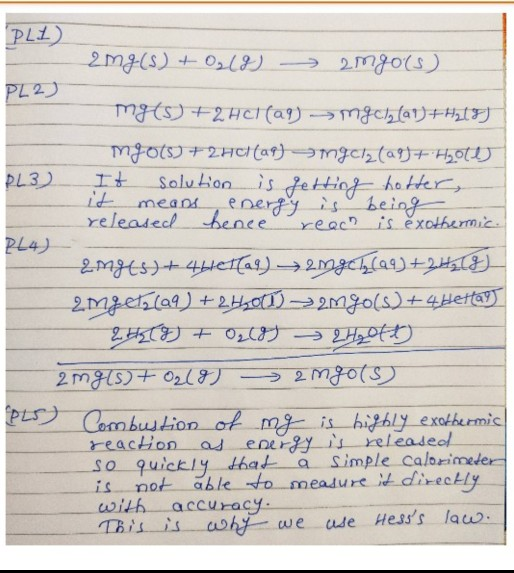 PL1)
2Mg(s) + O2(g) ⟶ 2MgO(s)
PL2)
Mg(s) + 2HCl(aq) → MgCl2(aq) + H2(g)
MgO(s) + 2HCl(aq) → MgCl2(aq) + H2O(l)
PL3) If solution is getting hotter,
it means energy is being
released hence reacⁿ is exothermic.
PL4)
2Mg(s) + 4HCl(aq) → 2MgCl2(aq) + 2H2(g)
2MgCl2(aq) + 2H2O(l) → 2MgO(s) + 4HCl(aq)
2H2(g) + O2(g) → 2H2O(l)
2Mg(s) + O2(g) ⟶ 2MgO(s)
PL5) Combustion of Mg is highly exothermic
reaction as energy is released
so quickly that a simple calorimeter
is not able to measure it directly
with accuracy.
This is why we use Hess's law.